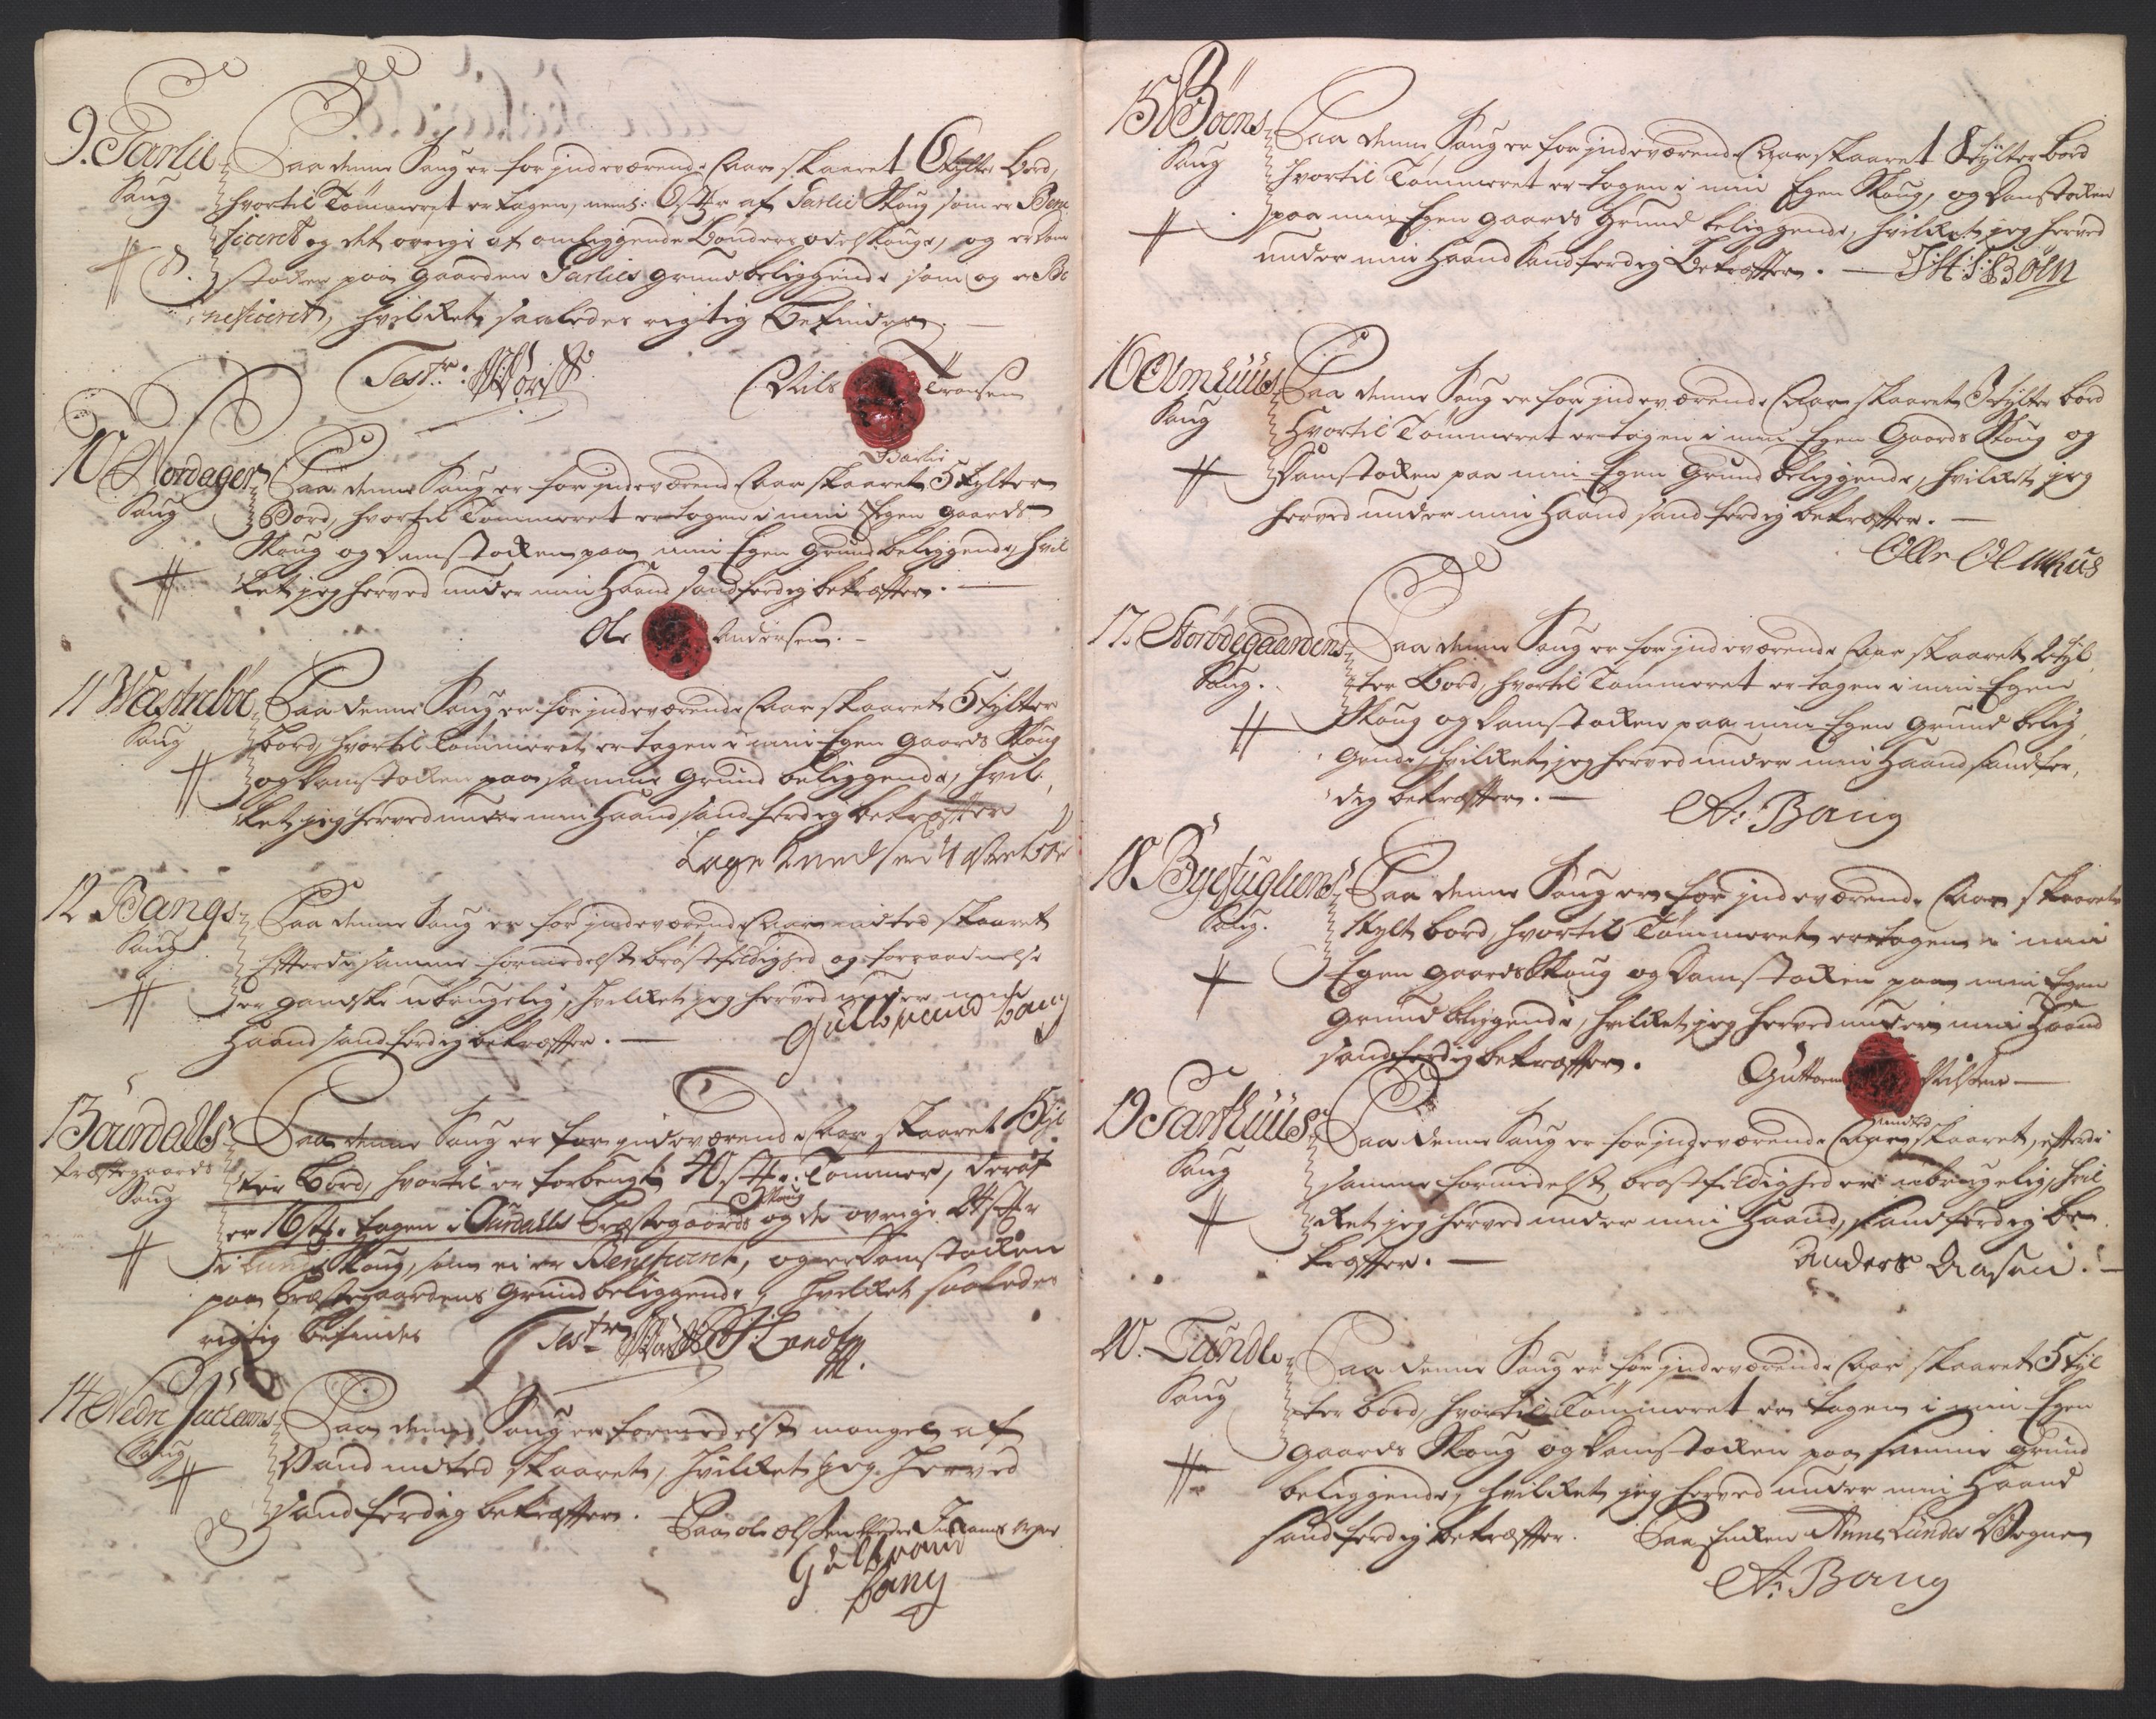 9. Garlie Paa denne Saug er for indeværende Aar skaaret 6 tylter Bord,
Saug hvortil Tømmeret er tagen, nemlig: 6 st: af Garlie Skoug som er Bene
ficeret og det øvrige af omliggende Bønders odelskouge, og er Dam
stocken paa gaarden Garlies grund beliggende som og er Be
neficeret, hvilcket saaledes rigtig befindes.
Test:
Nils Tronsen
Garlie
10 Nordagers Paa denne Saug er for indeværende Aar skaaret 5 tylter
Saug Bord, hvortil Tømmeret er tagen i min Egen gaards
Skoug og Damstocken paa min Egen grund beliggende, hvil
ket jeg herved under min Haand sandferdig bekræfter.
Ole Andersen.
11 Wæstrebøe Paa denne Saug er for indeværende Aar skaaret 5 tylter
Saug bord, hvortil Tømmeret er tagen i min Egen gaards Skoug
og Damstocken paa samme grund beliggende, hvil,
ket jeg herved under min Haand sandferdig bekræfter
Lage Knudsen
12 Bangs Paa denne Saug er for indeværende Aar intet skaaret
Saug Efterdi samme formedelst brøstfeldighed og forraadnelse
er gandske ubrugelig, hvilcket jeg herved under min
Haand sandferdig bekræfter. Gulbrand Bang
13 Ourdalls Paa denne Saug er for indeværende Aar skaaret 15 tyl
Præstegaards ter Bord, hvortil er forbrugt 40 st: Tømmer, deraf
Saug er 16 st: tagen i Ourdalls Præstegaards Skoug og de øvrige 24 st:
i Skoug, som ei er Beneficeret, og er Damstocken
paa Præstegaardens grund beliggende, hvilcket saaledes
rigtig befindes Test
14 Nedre Juclams Paa denne Saug er formedelst mangel af
Saug Vand intet skaaret, hvilcket jeg herved
sandferdig bekræfter. Paa Ole Nedre Juclams vegne
Gulbrand
Bang
15 Bøens Paa denne Saug er for indeværende Aar skaaret 18 tylter bord
Saug hvortil Tømmeret er tagen i min Egen Skoug, og Damstocken
paa min Egen gaards Grund beliggende, hvilcket jeg herved
under min Haand sandferdig bekræfter. Bøen
16 Olmhuus Paa denne Saug er for indeværende Aar skaaret 3 tylter bord
Saug Hvortil Tømmeret er tagen i min Egen Gaards Skoug og
Damstocken paa min Egen Grund beliggende, hvilcket jeg
herved under min Haand sandferdig bekræfter.
Olle Olmhus
17. Storødegaardens Paa denne Saug er for indeværende Aar skaaret 2 tyl,
Saug. ter Bord, hvortil Tømmeret er tagen i min Egen
Skoug og Damstocken paa min Egen grund belig,
gende, hvilcket jeg herved under min Haand sandfer,
dig bekræfter. A: Bang
18 Byefugliens Paa denne Saug er for indeværende Aar skaaret
Saug. 1 tylt bord, hvortil Tømmeret er tagen i min
Egen gaards Skoug og Damstocken paa min Egen
Grund beliggende, hvilcket jeg herved under min Haand
sandferdig bekræfter. Guttorm Nilsen
19 Garthuus Paa denne Saug er for indeværende Aar intet skaaret, efterdi
Saug samme formedelst brøstfeldighed er ubrugelig, hvil
cket jeg herved under min Haand, sandferdig be
kræfter. Anders Aasen.
20. Lunde Paa denne Saug er for indeværende Aar skaaret 5 tyl
Saug ter bord, hvortil Tømmeret er tagen i min Egen
gaards Skoug og Damstocken paa samme grund
beliggende, hvilcket jeg herved under min Haand
sandferdig bekræfter. Paa Enken Anne Lundes Vegne
A: Bang